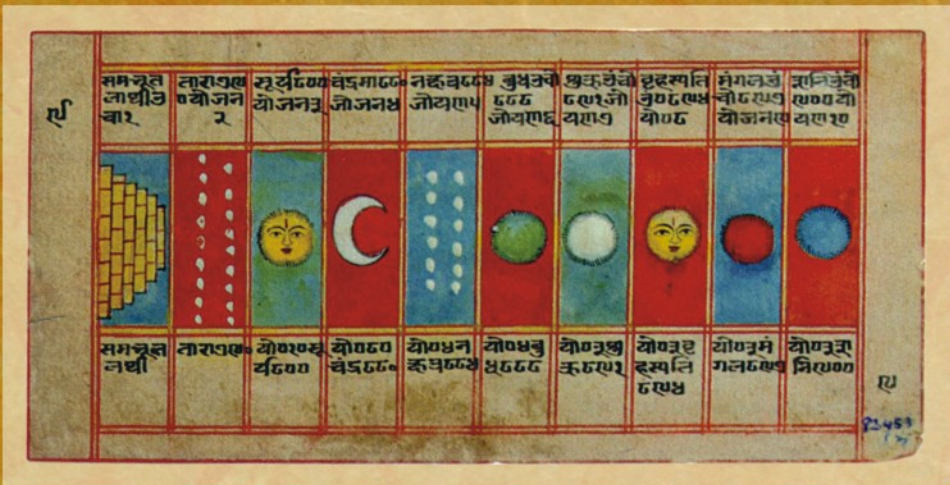 समभूत
लाथीउ
चा२
तारा७९
०योजन
२
सूर्य८००
योजन३
चंद्रमा८८०
जोजन४
नक्षत्र८८४
जोयण५
८८८
जोयण६
८९१जो
यण७
बृहस्पति
उ०८९४
यो०८
मंगलउं
चो८९७
योजन९
शनिउंचो
९००यो
यण१०
समभूत
लाथी
तारा७९०
यो०१०सू
र्य८००
यो०८०
चंद्र८८०
यो०४न
क्षत्र८८४
यो०४बु
ध८८८
यो०३शु
क्र८९१
यो०३बृ
हस्पति
८९४
यो०३मं
गल८९७
यो०३श
नि९००
९